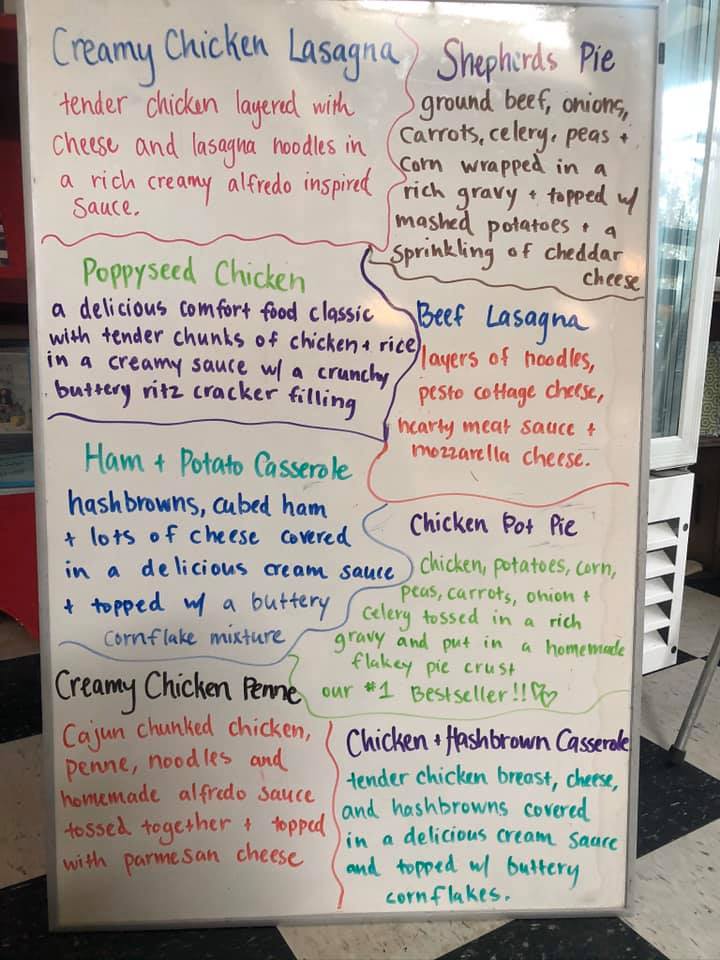 Creamy Chicken Lasagna
tender chicken layered with
cheese and lasagna noodles in
a rich creamy alfredo inspired
sauce.
Shepherds Pie
ground beef, onions,
carrots, celery, peas +
corn wrapped in a
rich gravy + topped w/
mashed potatoes + a
sprinkling of cheddar
cheese
Poppyseed Chicken
a delicious comfort food classic
with tender chunks of chicken + rice
in a creamy sauce w/ a crunchy
buttery ritz cracker filling
Beef Lasagna
layers of noodles,
pesto cottage cheese,
hearty meat sauce +
mozzarella cheese.
Ham + Potato Casserole
hashbrowns, cubed ham
+ lots of cheese covered
in a delicious cream sauce
+ topped w/ a buttery
cornflake mixture
Chicken Pot Pie
chicken, potatoes, corn,
peas, carrots, onion +
celery tossed in a rich
gravy and put in a homemade
flakey pie crust
our #1 Bestseller!!♡♡
Creamy Chicken Penne
Cajun chunked chicken,
penne, noodles and
homemade alfredo sauce
tossed together + topped
with parmesan cheese
Chicken + Hashbrown Casserole
tender chicken breast, cheese,
and hashbrowns covered
in a delicious cream sauce
and topped w/ buttery
cornflakes.